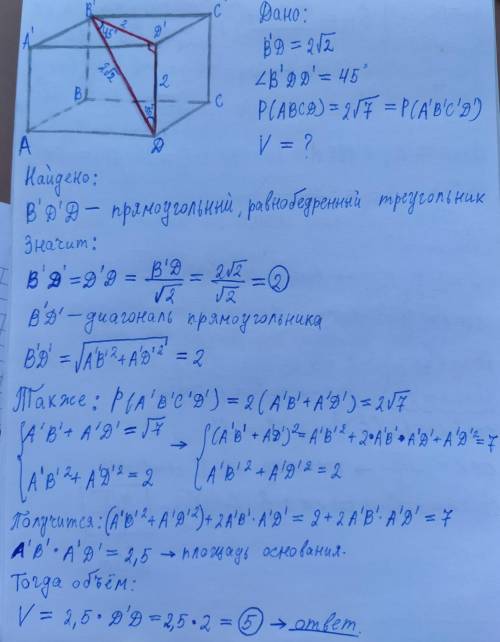 B' C'
45° 2
A' D'
2√2 2
B C
45°
A D
Дано:
B'D = 2√2
∠B'DD' = 45°
P(ABCD) = 2√7 = P(A'B'C'D')
V = ?
Найдено:
B'D'D — прямоугольний, равнобедренний треугольник
Значит:
B'D' = D'D = B'D/√2 = 2√2/√2 = 2
B'D' — диагональ прямоугольника
B'D' = √(A'B'² + A'D'²) = 2
Также: P(A'B'C'D') = 2(A'B' + A'D') = 2√7
{A'B' + A'D' = √7 → {(A'B' + A'D')² = A'B'² + 2·A'B'·A'D' + A'D'² = 7
A'B'² + A'D'² = 2 A'B'² + A'D'² = 2
Получится: (A'B'² + A'D'²) + 2A'B'·A'D' = 2 + 2A'B'·A'D' = 7
A'B'·A'D' = 2,5 → площадь основания.
Тогда объём:
V = 2,5·D'D = 2,5·2 = 5 → ответ.